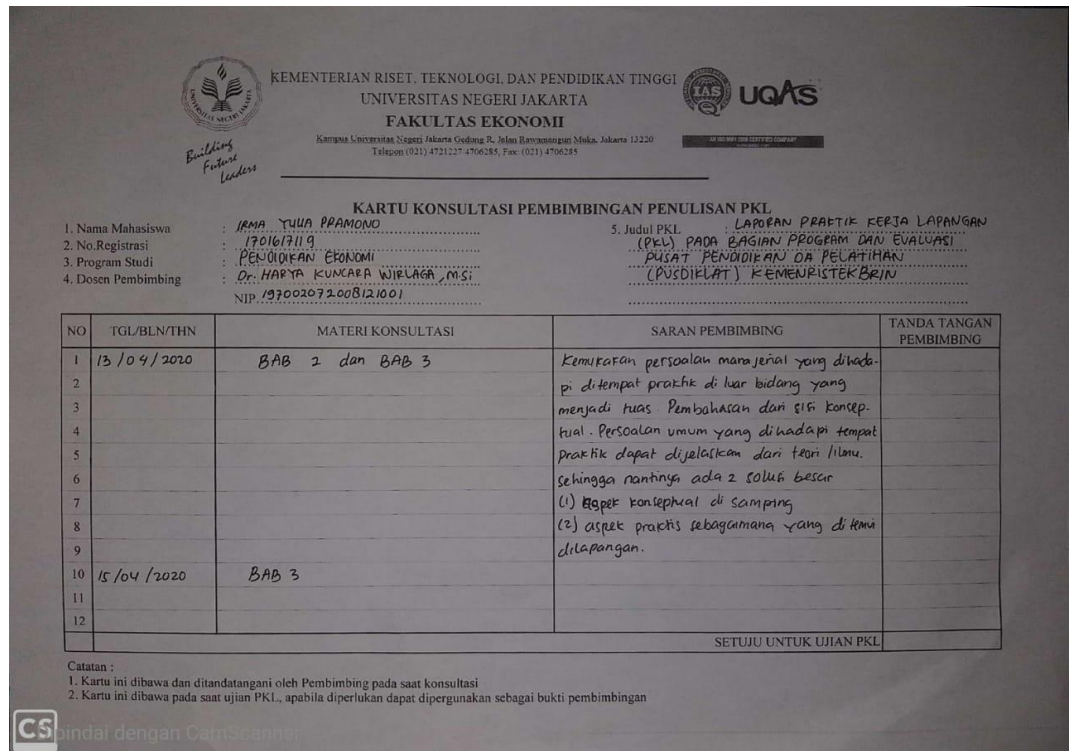 KEMENTERIAN RISET, TEKNOLOGI, DAN PENDIDIKAN TINGGI
UNIVERSITAS NEGERI JAKARTA
FAKULTAS EKONOMI
Kampus Universitas Negeri Jakarta Gedung R, Jalan Rawamangun Muka, Jakarta 13220
Telepon (021) 4721227/4706285, Fax: (021) 4706285
UNIVERSITAS NEGERI JAKARTA
Building
Future
Leaders
IAS
UQAS
KARTU KONSULTASI PEMBIMBINGAN PENULISAN PKL
1. Nama Mahasiswa : IRMA YULIA PRAMONO
2. No.Registrasi : 1701617119
3. Program Studi : PENDIDIKAN EKONOMI
4. Dosen Pembimbing : Dr. HARYA KUNCARA WIRLAGA, M.Si
NIP 197002072008121001
5. Judul PKL : LAPORAN PRAKTIK KERJA LAPANGAN
(PKL) PADA BAGIAN PROGRAM DAN EVALUASI
PUSAT PENDIDIKAN DA PELATIHAN
(PUSDIKLAT) KEMENRISTEKBRIN
NO TGL/BLN/THN MATERI KONSULTASI SARAN PEMBIMBING TANDA TANGAN PEMBIMBING
1 13/04/2020 BAB 2 dan BAB 3 Kemukakan persoalan manajerial yang dihada-
2 pi ditempat praktik di luar bidang yang
3 menjadi tuas. Pembahasan dari sisi konsep-
4 tual. Persoalan umum yang dihadapi tempat
5 praktik dapat dijelaskan dari teori/ilmu.
6 sehingga nantinya ada 2 solusi besar
7 (1) aspek konseptual di samping
8 (2) aspek praktis sebagaimana yang ditemui
9 dilapangan.
10 15/04/2020 BAB 3
11
12
SETUJU UNTUK UJIAN PKL
Catatan :
1. Kartu ini dibawa dan ditandatangani oleh Pembimbing pada saat konsultasi
2. Kartu ini dibawa pada saat ujian PKL, apabila diperlukan dapat dipergunakan sebagai bukti pembimbingan
CS Dipindai dengan CamScanner